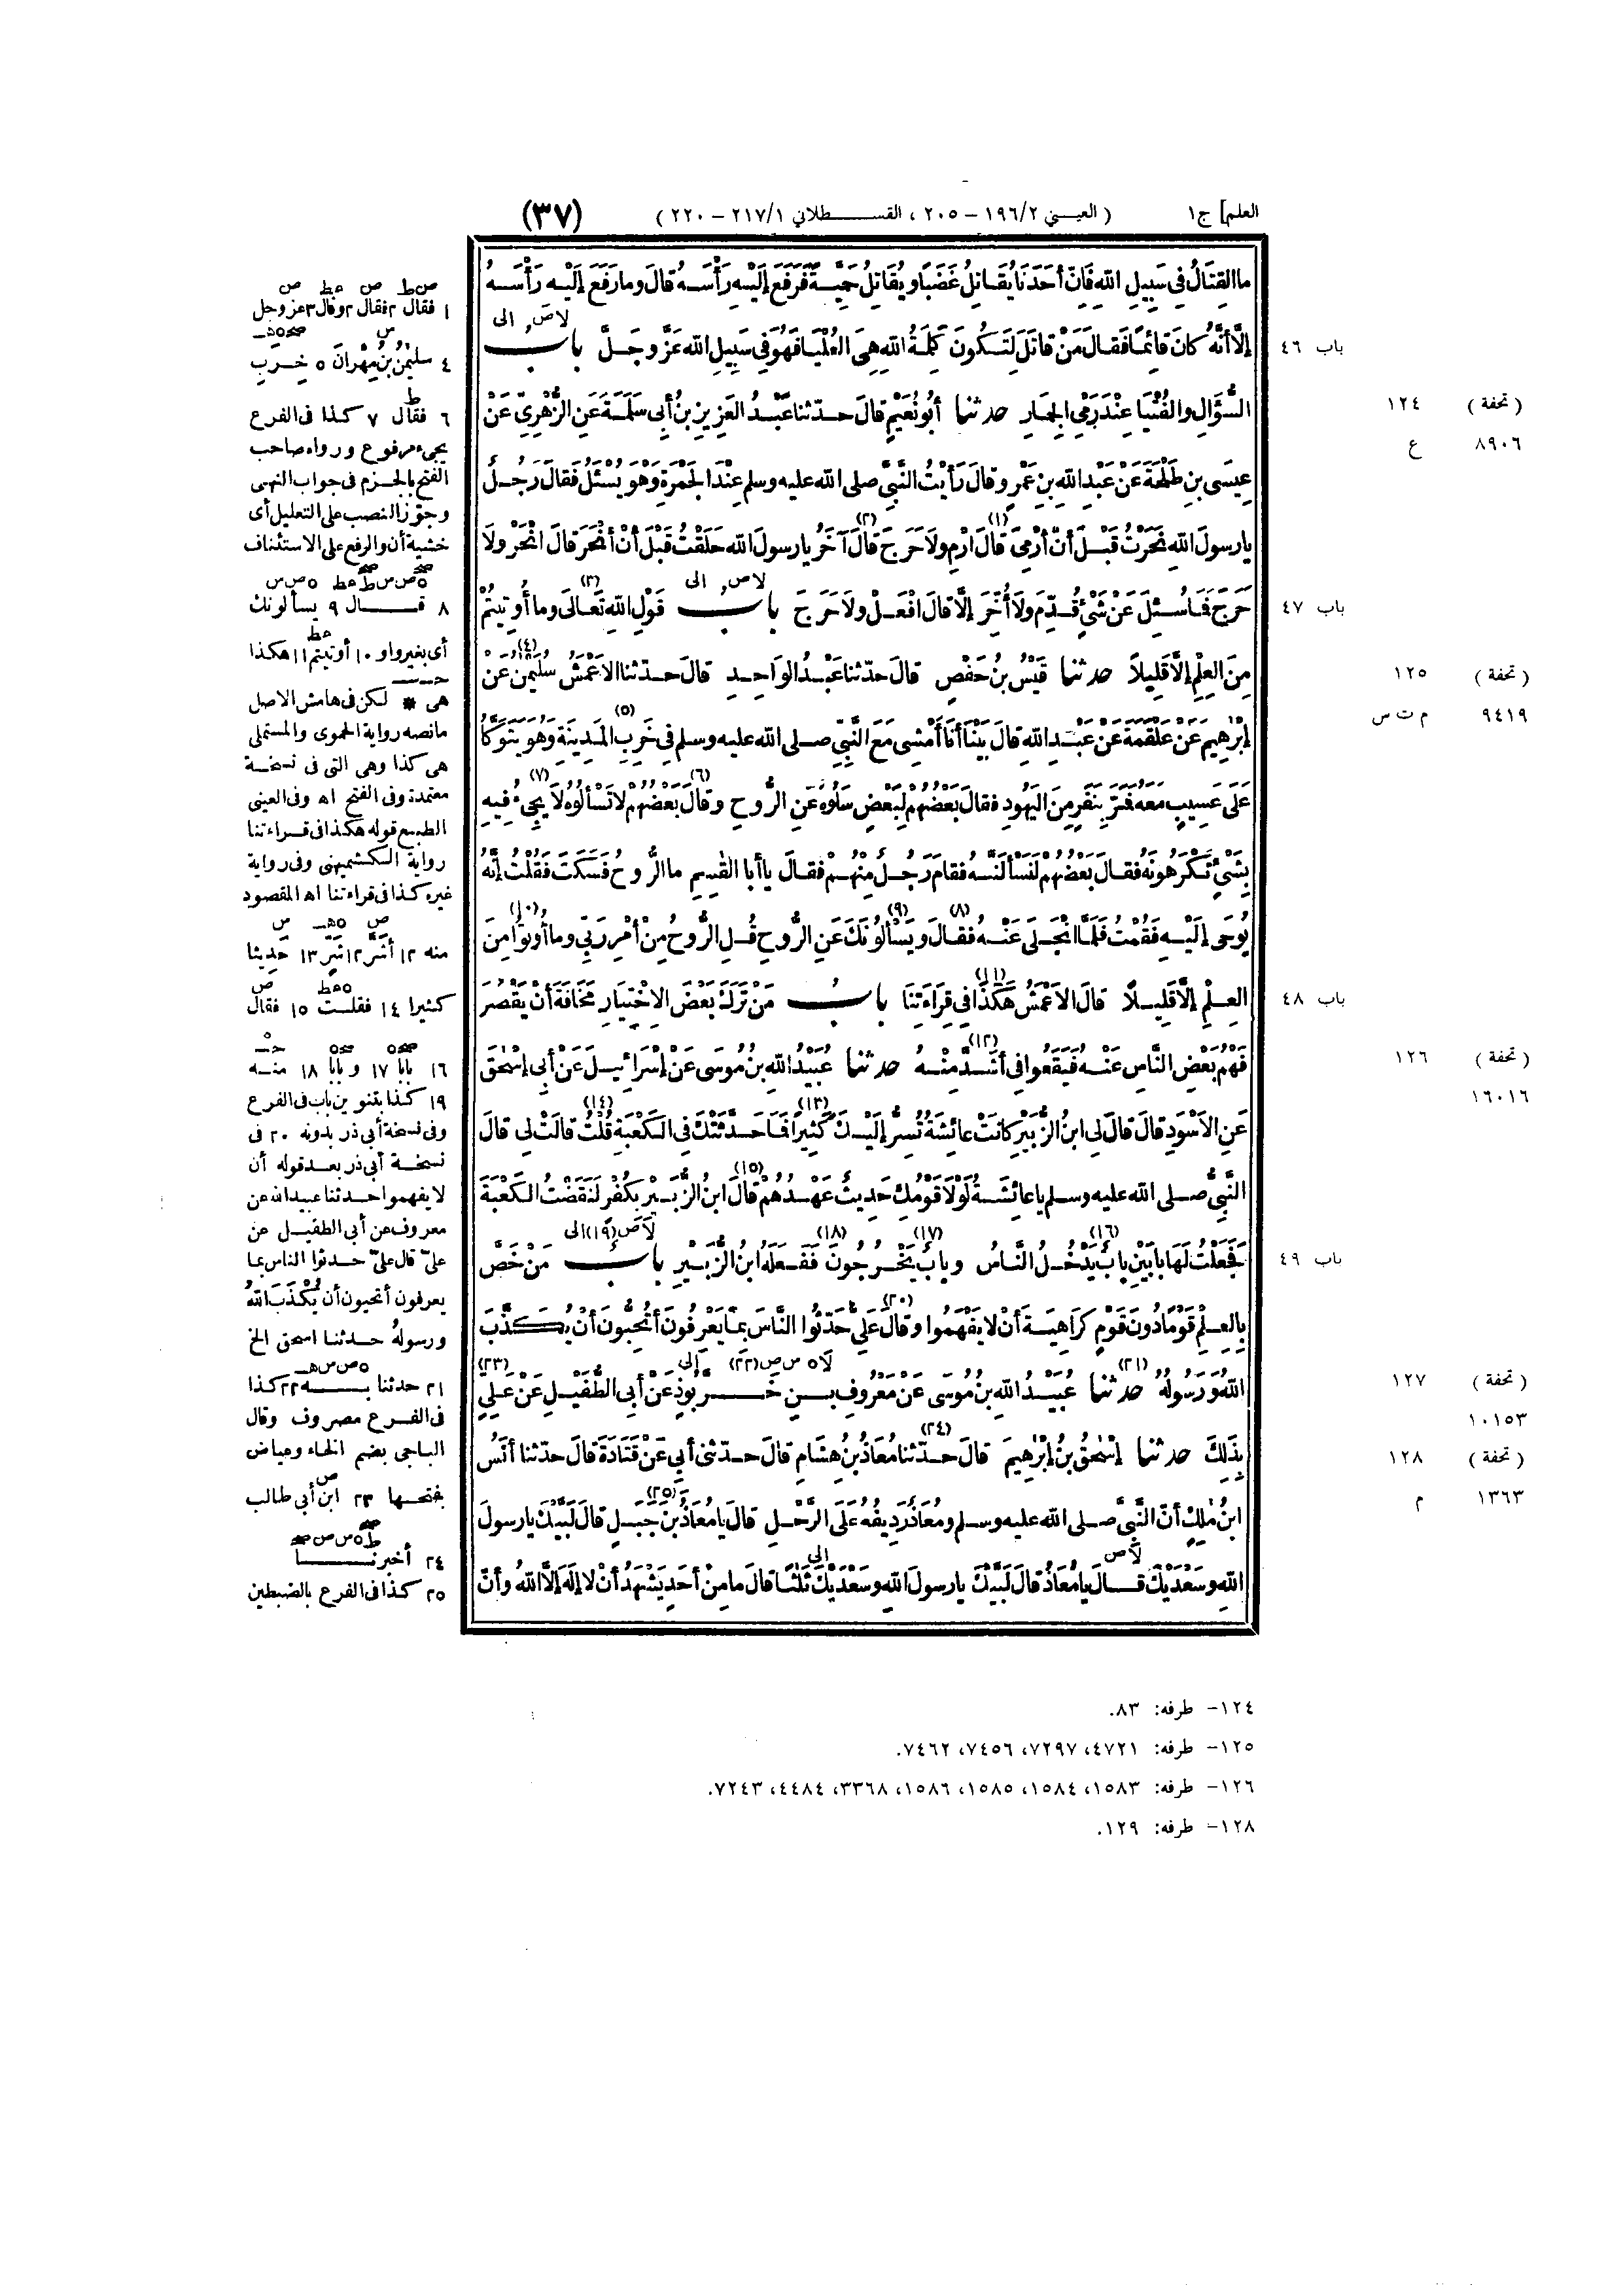 العلم] ج١ (العيني ١٩٦/٢ - ٢٠٥ ، القسطلاني ٢١٧/١ - ٢٢٠) (٣٧)
ما القِتَالُ فِي سَبِيلِ اللهِ فَإِنَّ أَحَدَنَا يُقَاتِلُ غَضَبًا وَيُقَاتِلُ حَمِيَّةً فَرَفَعَ إِلَيْهِ رَأْسَهُ قَالَ وما رَفَعَ إِلَيْهِ رَأْسَهُ
إِلَّا أَنَّهُ كَانَ قَائِمًا فَقَالَ مَنْ قَاتَلَ لِتَكُونَ كَلِمَةُ اللهِ هِيَ العُلْيَا فَهُوَ فِي سَبِيلِ اللهِ عَزَّ وَجَلَّ بابُ
لا ص الى
باب ٤٦
السُّؤَالِ وَالفُتْيَا عِنْدَ رَمْيِ الجِمَارِ حدثنا أَبُو نُعَيْمٍ قَالَ حدّثنا عَبْدُ العَزِيزِ بنُ أَبِي سَلَمَةَ عَنِ الزُّهْرِيِّ عَنْ
(تحفة) ١٢٤
٨٩٠٦ ع
عِيسَى بنِ طَلْحَةَ عَنْ عَبْدِ اللهِ بنِ عَمْرٍو قَالَ رَأَيْتُ النَّبِيَّ صلى الله عليه وسلم عِنْدَ الجَمْرَةِ وَهُوَ يُسْئَلُ فَقَالَ رَجُلٌ
يا رسولَ اللهِ نَحَرْتُ قَبْلَ أَنْ أَرْمِيَ (١) قَالَ ارْمِ وَلَا حَرَجَ (٢) قَالَ آخَرُ يا رسولَ الله حَلَقْتُ قَبْلَ أَنْ أَنْحَرَ قَالَ انْحَرْ وَلَا
حَرَجَ فَمَا سُئِلَ عَنْ شَيْءٍ قُدِّمَ وَلَا أُخِّرَ إِلَّا قَالَ افْعَلْ وَلَا حَرَجَ بابُ قَوْلِ اللهِ (٣) تَعَالَى وما أُوتِيتُمْ
لا ص الى
باب ٤٧
مِنَ العِلْمِ إِلَّا قَلِيلًا حدثنا قَيْسُ بنُ حَفْصٍ قَالَ حدّثنا عَبْدُ الوَاحِدِ قَالَ حدّثنا الأَعْمَشُ (٤) سُلَيْمٰنُ عَنْ
(تحفة) ١٢٥
٩٤١٩ م ت س
إِبْرٰهِيمَ عَنْ عَلْقَمَةَ عَنْ عَبْدِ اللهِ قَالَ بَيْنَا أَنَا أَمْشِي مَعَ النَّبِيِّ صلى الله عليه وسلم فِي (٥) خَرِبِ المَدِينَةِ وَهُوَ يَتَوَكَّأُ
عَلَى عَسِيبٍ مَعَهُ فَمَرَّ بِنَفَرٍ مِنَ اليَهُودِ فَقَالَ بَعْضُهُمْ لِبَعْضٍ سَلُوهُ عَنِ الرُّوحِ (٦) وَقَالَ بَعْضُهُمْ لَا تَسْأَلُوهُ (٧) لَا يَجِيءُ فِيهِ
بِشَيْءٍ تَكْرَهُونَهُ فَقَالَ بَعْضُهُمْ لَنَسْأَلَنَّهُ فَقَامَ رَجُلٌ مِنْهُمْ فَقَالَ يا أَبَا القٰسِمِ ما الرُّوحُ فَسَكَتَ فَقُلْتُ إِنَّهُ
يُوحَى إِلَيْهِ فَقُمْتُ فَلَمَّا انْجَلَى عَنْهُ (٨) فَقَالَ (٩) وَيَسْأَلُونَكَ عَنِ الرُّوحِ قُلِ الرُّوحُ مِنْ أَمْرِ رَبِّي وما (١٠) أُوتُوا مِنَ
العِلْمِ إِلَّا قَلِيلًا قَالَ الأَعْمَشُ (١١) هٰكَذَا فِي قِرَاءَتِنَا بابُ مَنْ تَرَكَ بَعْضَ الِاخْتِيَارِ مَخَافَةَ أَنْ يَقْصُرَ
باب ٤٨
فَهْمُ بَعْضِ النَّاسِ عَنْهُ فَيَقَعُوا فِي (١٢) أَشَدَّ مِنْهُ حدثنا عُبَيْدُ اللهِ بنُ مُوسَى عَنْ إِسْرَائِيلَ عَنْ أَبِي إِسْحٰقَ
(تحفة) ١٢٦
١٦٠١٦
عَنِ الأَسْوَدِ قَالَ قَالَ لِي ابنُ الزُّبَيْرِ كَانَتْ عَائِشَةُ تُسِرُّ إِلَيْكَ (١٣) كَثِيرًا فَمَا حَدَّثَتْكَ فِي الكَعْبَةِ (١٤) قُلْتُ قَالَتْ لِي قَالَ
النَّبِيُّ صلى الله عليه وسلم يا عَائِشَةُ لَوْلَا قَوْمُكِ حَدِيثٌ عَهْدُهُمْ (١٥) قَالَ ابنُ الزُّبَيْرِ بِكُفْرٍ لَنَقَضْتُ الكَعْبَةَ
فَجَعَلْتُ لَهَا بَابَيْنِ (١٦) بَابٌ يَدْخُلُ النَّاسُ (١٧) وَبَابٌ يَخْرُجُونَ (١٨) فَفَعَلَهُ ابنُ الزُّبَيْرِ بابُ مَنْ خَصَّ
لا ص (١٩) الى
باب ٤٩
بِالعِلْمِ قَوْمًا دُونَ قَوْمٍ كَرَاهِيَةَ أَنْ لَا يَفْهَمُوا (٢٠) وَقَالَ عَلِيٌّ حَدِّثُوا النَّاسَ بِمَا يَعْرِفُونَ أَتُحِبُّونَ أَنْ يُكَذَّبَ
اللهُ وَرَسُولُهُ (٢١) حدثنا عُبَيْدُ اللهِ بنُ مُوسَى عَنْ مَعْرُوفِ بنِ (٢٢) خَرَّبُوذٍ عَنْ أَبِي الطُّفَيْلِ عَنْ عَلِيٍّ (٢٣)
(تحفة) ١٢٧
١٠١٥٣
بِذٰلِكَ حدثنا إِسْحٰقُ بنُ إِبْرٰهِيمَ قَالَ (٢٤) حدّثنا مُعَاذُ بنُ هِشَامٍ قَالَ حدّثني أَبِي عَنْ قَتَادَةَ قَالَ حدّثنا أَنَسُ
(تحفة) ١٢٨
١٣٦٣ م
ابنُ مٰلِكٍ أَنَّ النَّبِيَّ صلى الله عليه وسلم وَمُعَاذٌ رَدِيفُهُ عَلَى الرَّحْلِ قَالَ يا مُعَاذُ (٢٥) بنَ جَبَلٍ قَالَ لَبَّيْكَ يا رسولَ
اللهِ وَسَعْدَيْكَ قَالَ يا مُعَاذُ قَالَ لَبَّيْكَ يا رسولَ اللهِ وَسَعْدَيْكَ ثَلٰثًا قَالَ ما مِنْ أَحَدٍ يَشْهَدُ أَنْ لَا إِلٰهَ إِلَّا اللهُ وَأَنَّ
١ فقال ٢ فقال ٢ وقال ٣ عز وجل
٤ سليمٰنُ بنُ مِهْرانَ ٥ خِرَبِ
٦ فقال ٧ كذا في الفرع
يجيء مرفوع ورواه صاحب
الفتح بالجزم في جواب النهى
وجوّز النصب على التعليل أى
خشية أن والرفع على الاستئناف
٨ قال ٩ يسألونك
أى بغير واو ١٠ أوتيتم ١١ هكذا
هى * لكن في هامش الاصل
مانصه رواية الحموى والمستملى
هى كذا وهى التى فى نسخة
معتمدة وفى الفتح اه وفى العينى
الطبع قوله هكذا فى قراءتنا
رواية الكشميهنى وفى رواية
غيره كذا فى قراءتنا اه المقصود
منه ١٢ أشَرَّ ١٢ شَرٍّ ١٣ حَديثا
كثيرا ١٤ فقلت ١٥ فقال
١٦ بابًا ١٧ وبابًا ١٨ منه
١٩ كذا بتنوين باب فى الفرع
وفى نسخة أبى ذر بدونه ٢٠ فى
نسخة أبى ذر بعد قوله أن
لا يفهموا حدثنا عبيد الله عن
معروف عن أبى الطفيل عن
علىّ قال علىّ حدثوا الناس بما
يعرفون أتحبون أن يُكْذَبَ اللهُ
ورسولهُ حدثنا اسحق الخ
٢١ حدثنا به ٢٢ كذا
فى الفرع مصروف وقال
الباجى بضم الخاء وعياض
بفتحها ٢٣ ابن أبي طالب
٢٤ أخبرنا
٢٥ كذا فى الفرع بالضبطين
١٢٤- طرفه: ٨٣.
١٢٥- طرفه: ٤٧٢١، ٧٢٩٧، ٧٤٥٦، ٧٤٦٢.
١٢٦- طرفه: ١٥٨٣، ١٥٨٤، ١٥٨٥، ١٥٨٦، ٣٣٦٨، ٤٤٨٤، ٧٢٤٣.
١٢٨- طرفه: ١٢٩.